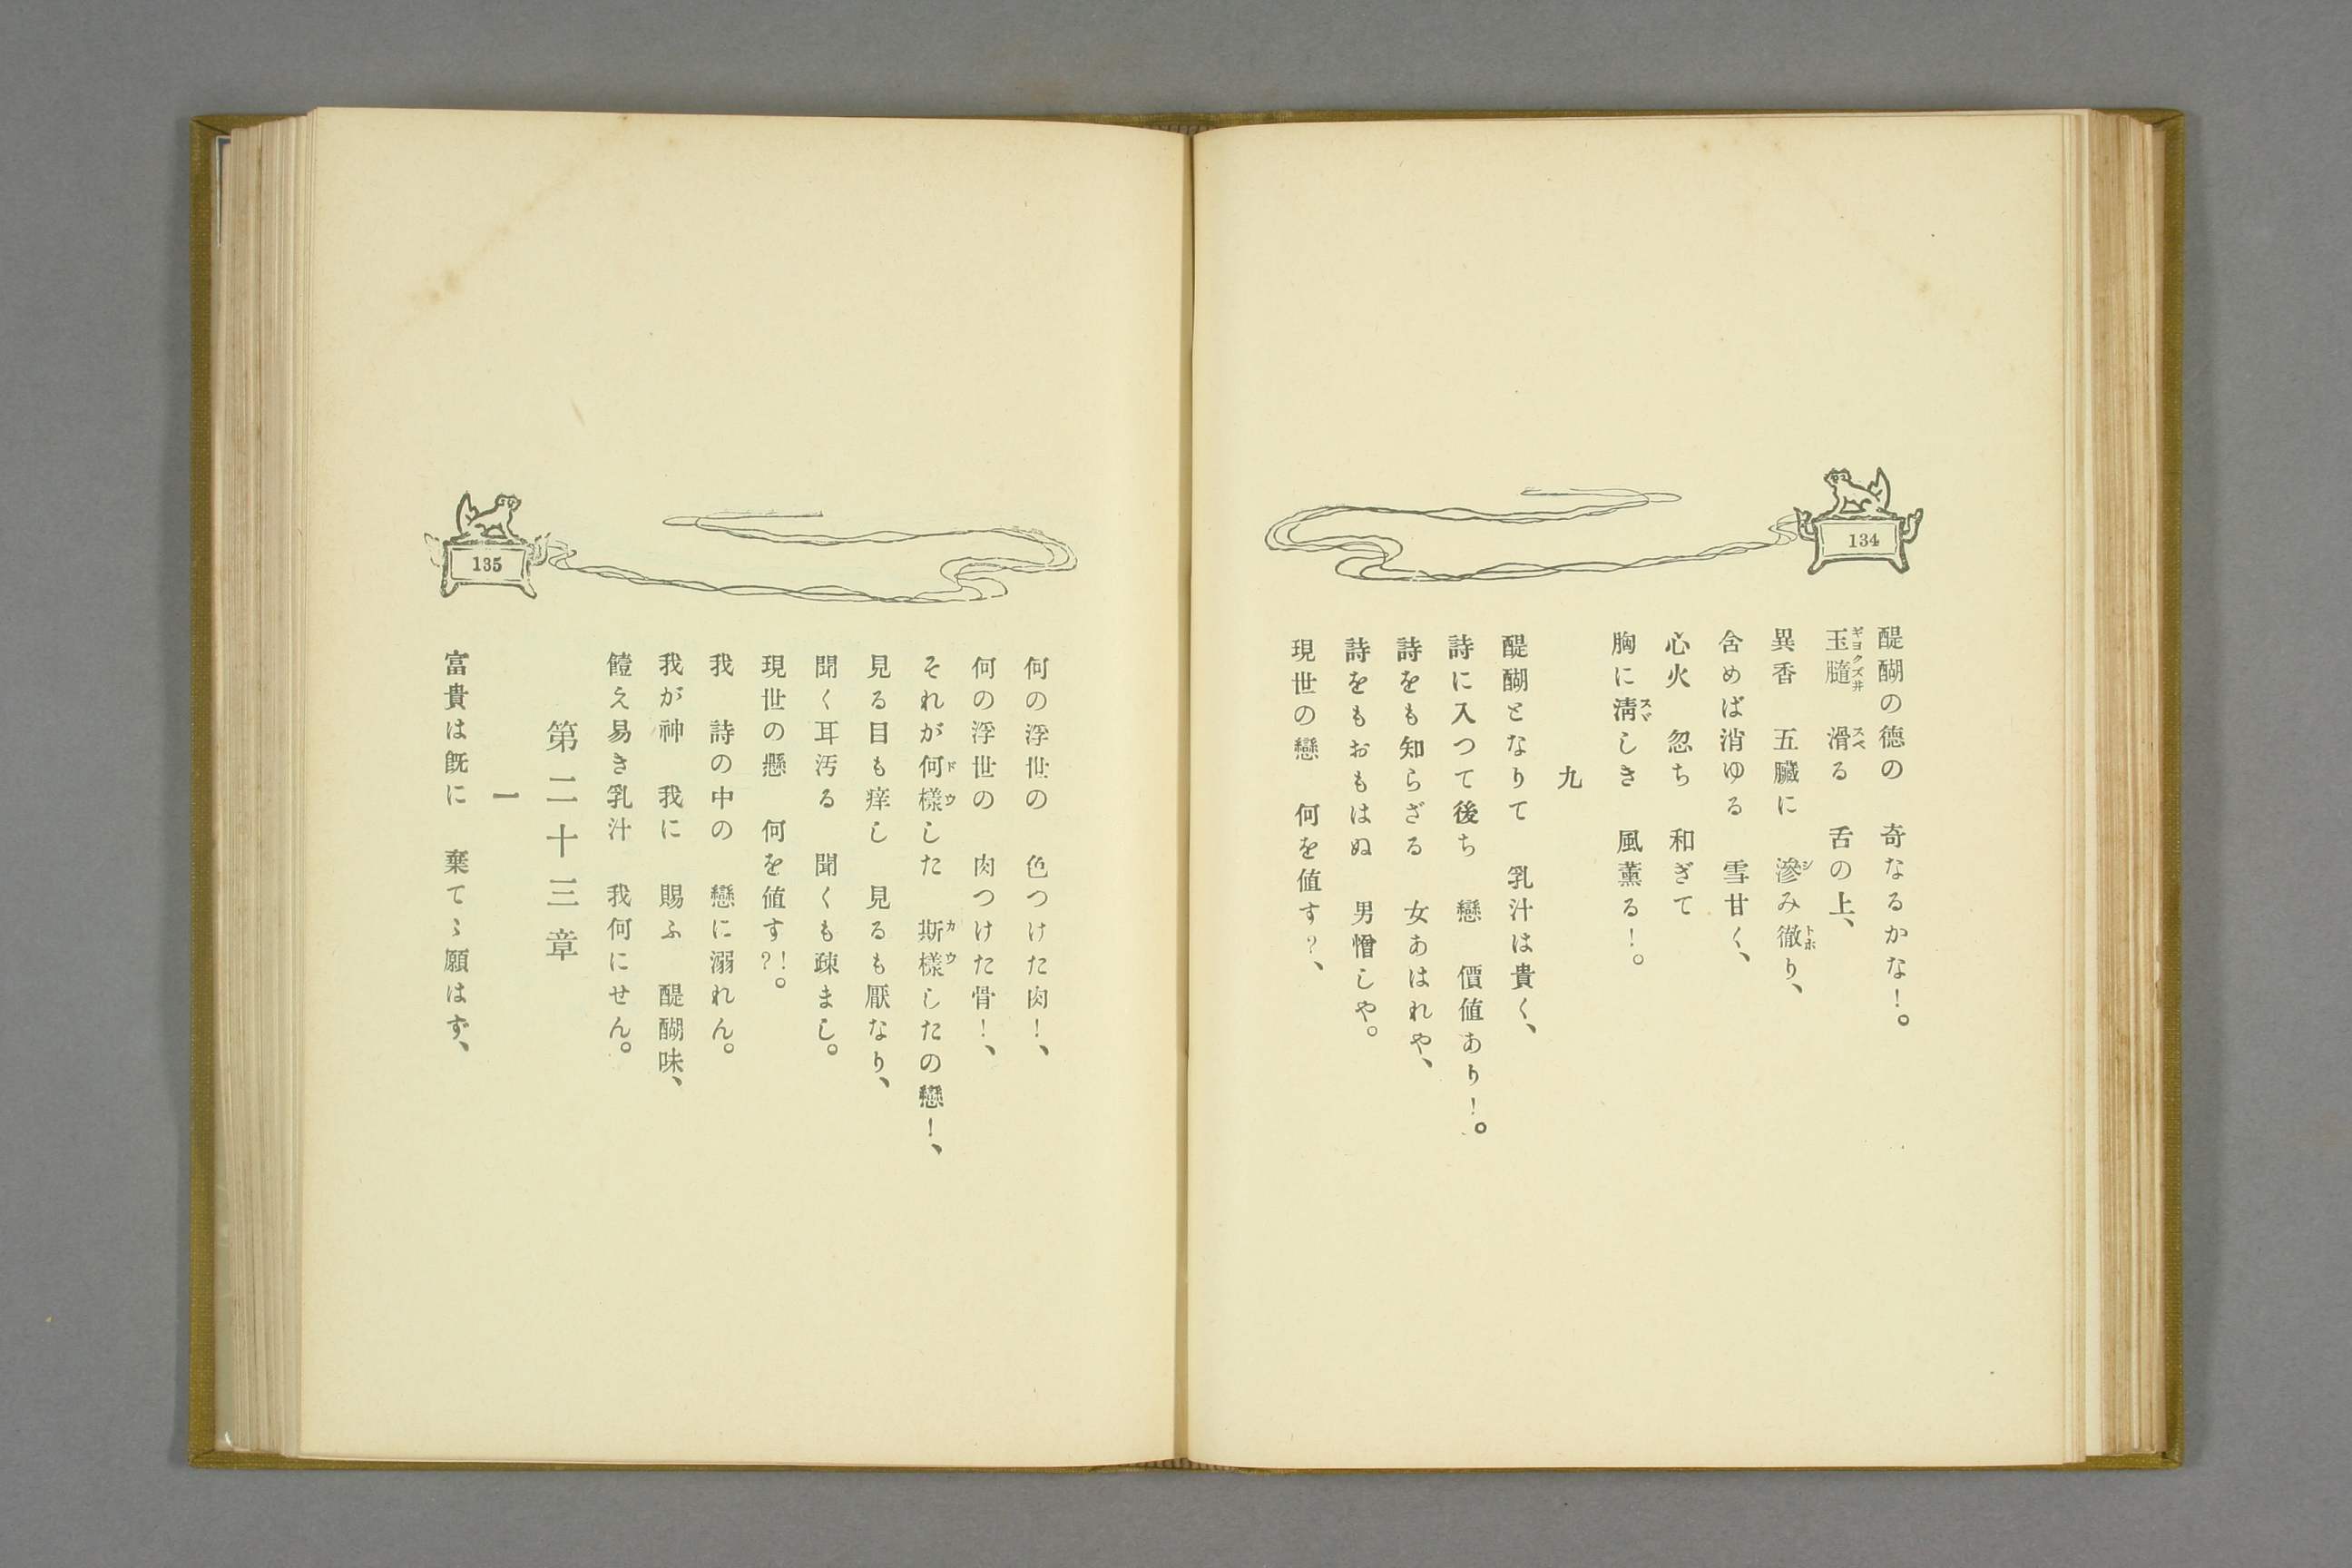 134
醍醐の徳の　奇なるかな！。
玉髓　滑る　舌の上、
ギヨクズ井　スベ
異香　五臟に　滲み徹り、
シ　トホ
含めば消ゆる　雪甘く、
心火　忽ち　和ぎて
胸に淸しき　風薰る！。
スヾ
九
醍醐となりて　乳汁は貴く、
詩に入つて後ち　戀　價値あり！。
詩をも知らざる　女あはれや、
詩をもおもはぬ　男憎しや。
現世の戀　何を値す？、
135
何の浮世の　色つけた肉！、
何の浮世の　肉つけた骨！、
それが何樣した　斯樣したの戀！、
ドウ　カウ
見る目も痒し　見るも厭なり、
聞く耳汚る　聞くも疎まし。
現世の懸　何を値す？！。
我　詩の中の　戀に溺れん。
我が神　我に　賜ふ　醍醐味、
饐え易き乳汁　我何にせん。
第二十三章
一
富貴は旣に　棄てゝ願はず、